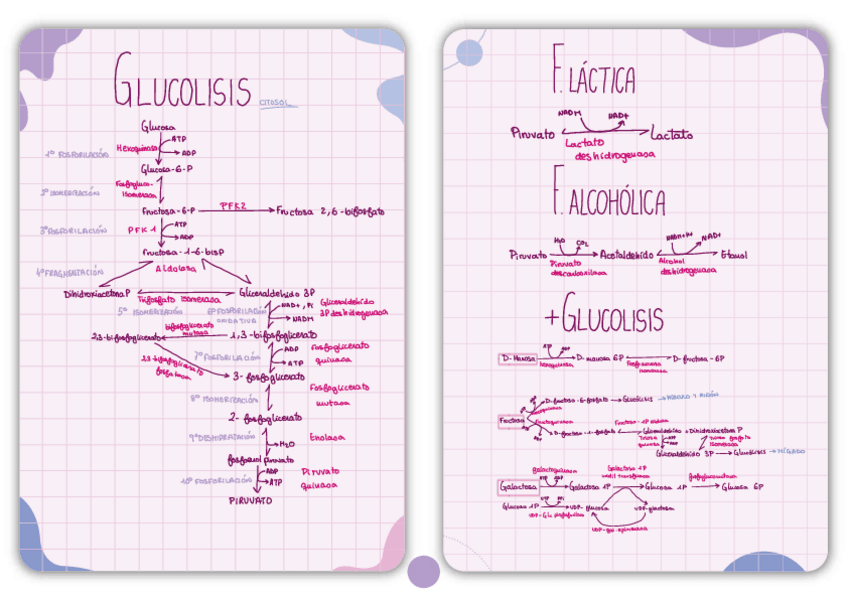 GLUCOLISIS CITOSOL
Glucosa
ATP
Hexoquinasa
ADP
1º FOSFORILACIÓN
Glucosa-6-P
Fosfogluco-
isomerasa
2º ISOMERIZACIÓN
Fructosa-6-P PFK2 Fructosa 2,6-bifosfato
3º FOSFORILACIÓN PFK1 ATP
ADP
Fructosa-1-6-bisP
4º FRAGMENTACIÓN Aldolasa
Dihidroxiacetona P Gliceraldehído 3P
Triosfosfato isomerasa
5º ISOMERIZACIÓN 6º FOSFORILACIÓN
OXIDATIVA
NAD+, Pi
NADH
Gliceraldehído
3P deshidrogenasa
bifosfoglicerato
mutasa
2,3-bifosfoglicerato 1,3-bifosfoglicerato
2,3-bifosfoglicerato
fosfatasa
7º FOSFORILACIÓN ADP
ATP
fosfoglicerato
quinasa
3-fosfoglicerato
8º ISOMERIZACIÓN
Fosfoglicerato
mutasa
2-fosfoglicerato
9º DESHIDRATACIÓN
H2O
Enolasa
fosfoenol piruvato
10º FOSFORILACIÓN
ADP
ATP
Piruvato
quinasa
PIRUVATO
F. LÁCTICA
NADH NAD+
Piruvato Lactato
Lactato
deshidrogenasa
F. ALCOHÓLICA
H2O CO2 NADH+H+ NAD+
Piruvato Acetaldehído Etanol
Piruvato
descarboxilasa
Alcohol
deshidrogenasa
+GLUCOLISIS
ATP ADP
D-Manosa D-manosa 6P D-fructosa-6P
hexoquinasa
D-fructosa-6-fosfato Glucólisis
Fructosa
Fructoquinasa
D-fructosa-1-fosfato Gliceraldehído + Dihidroxiacetona P
Triosa
quinasa
Triosa fosfato
isomerasa
Gliceraldehído 3P Glucólisis HÍGADO
Galactoquinasa Galactosa 1P
fosfoglucomutasa
Galactosa Galactosa 1P Glucosa 1P Glucosa 6P
Glucosa 1P UDP-glucosa UDP-galactosa